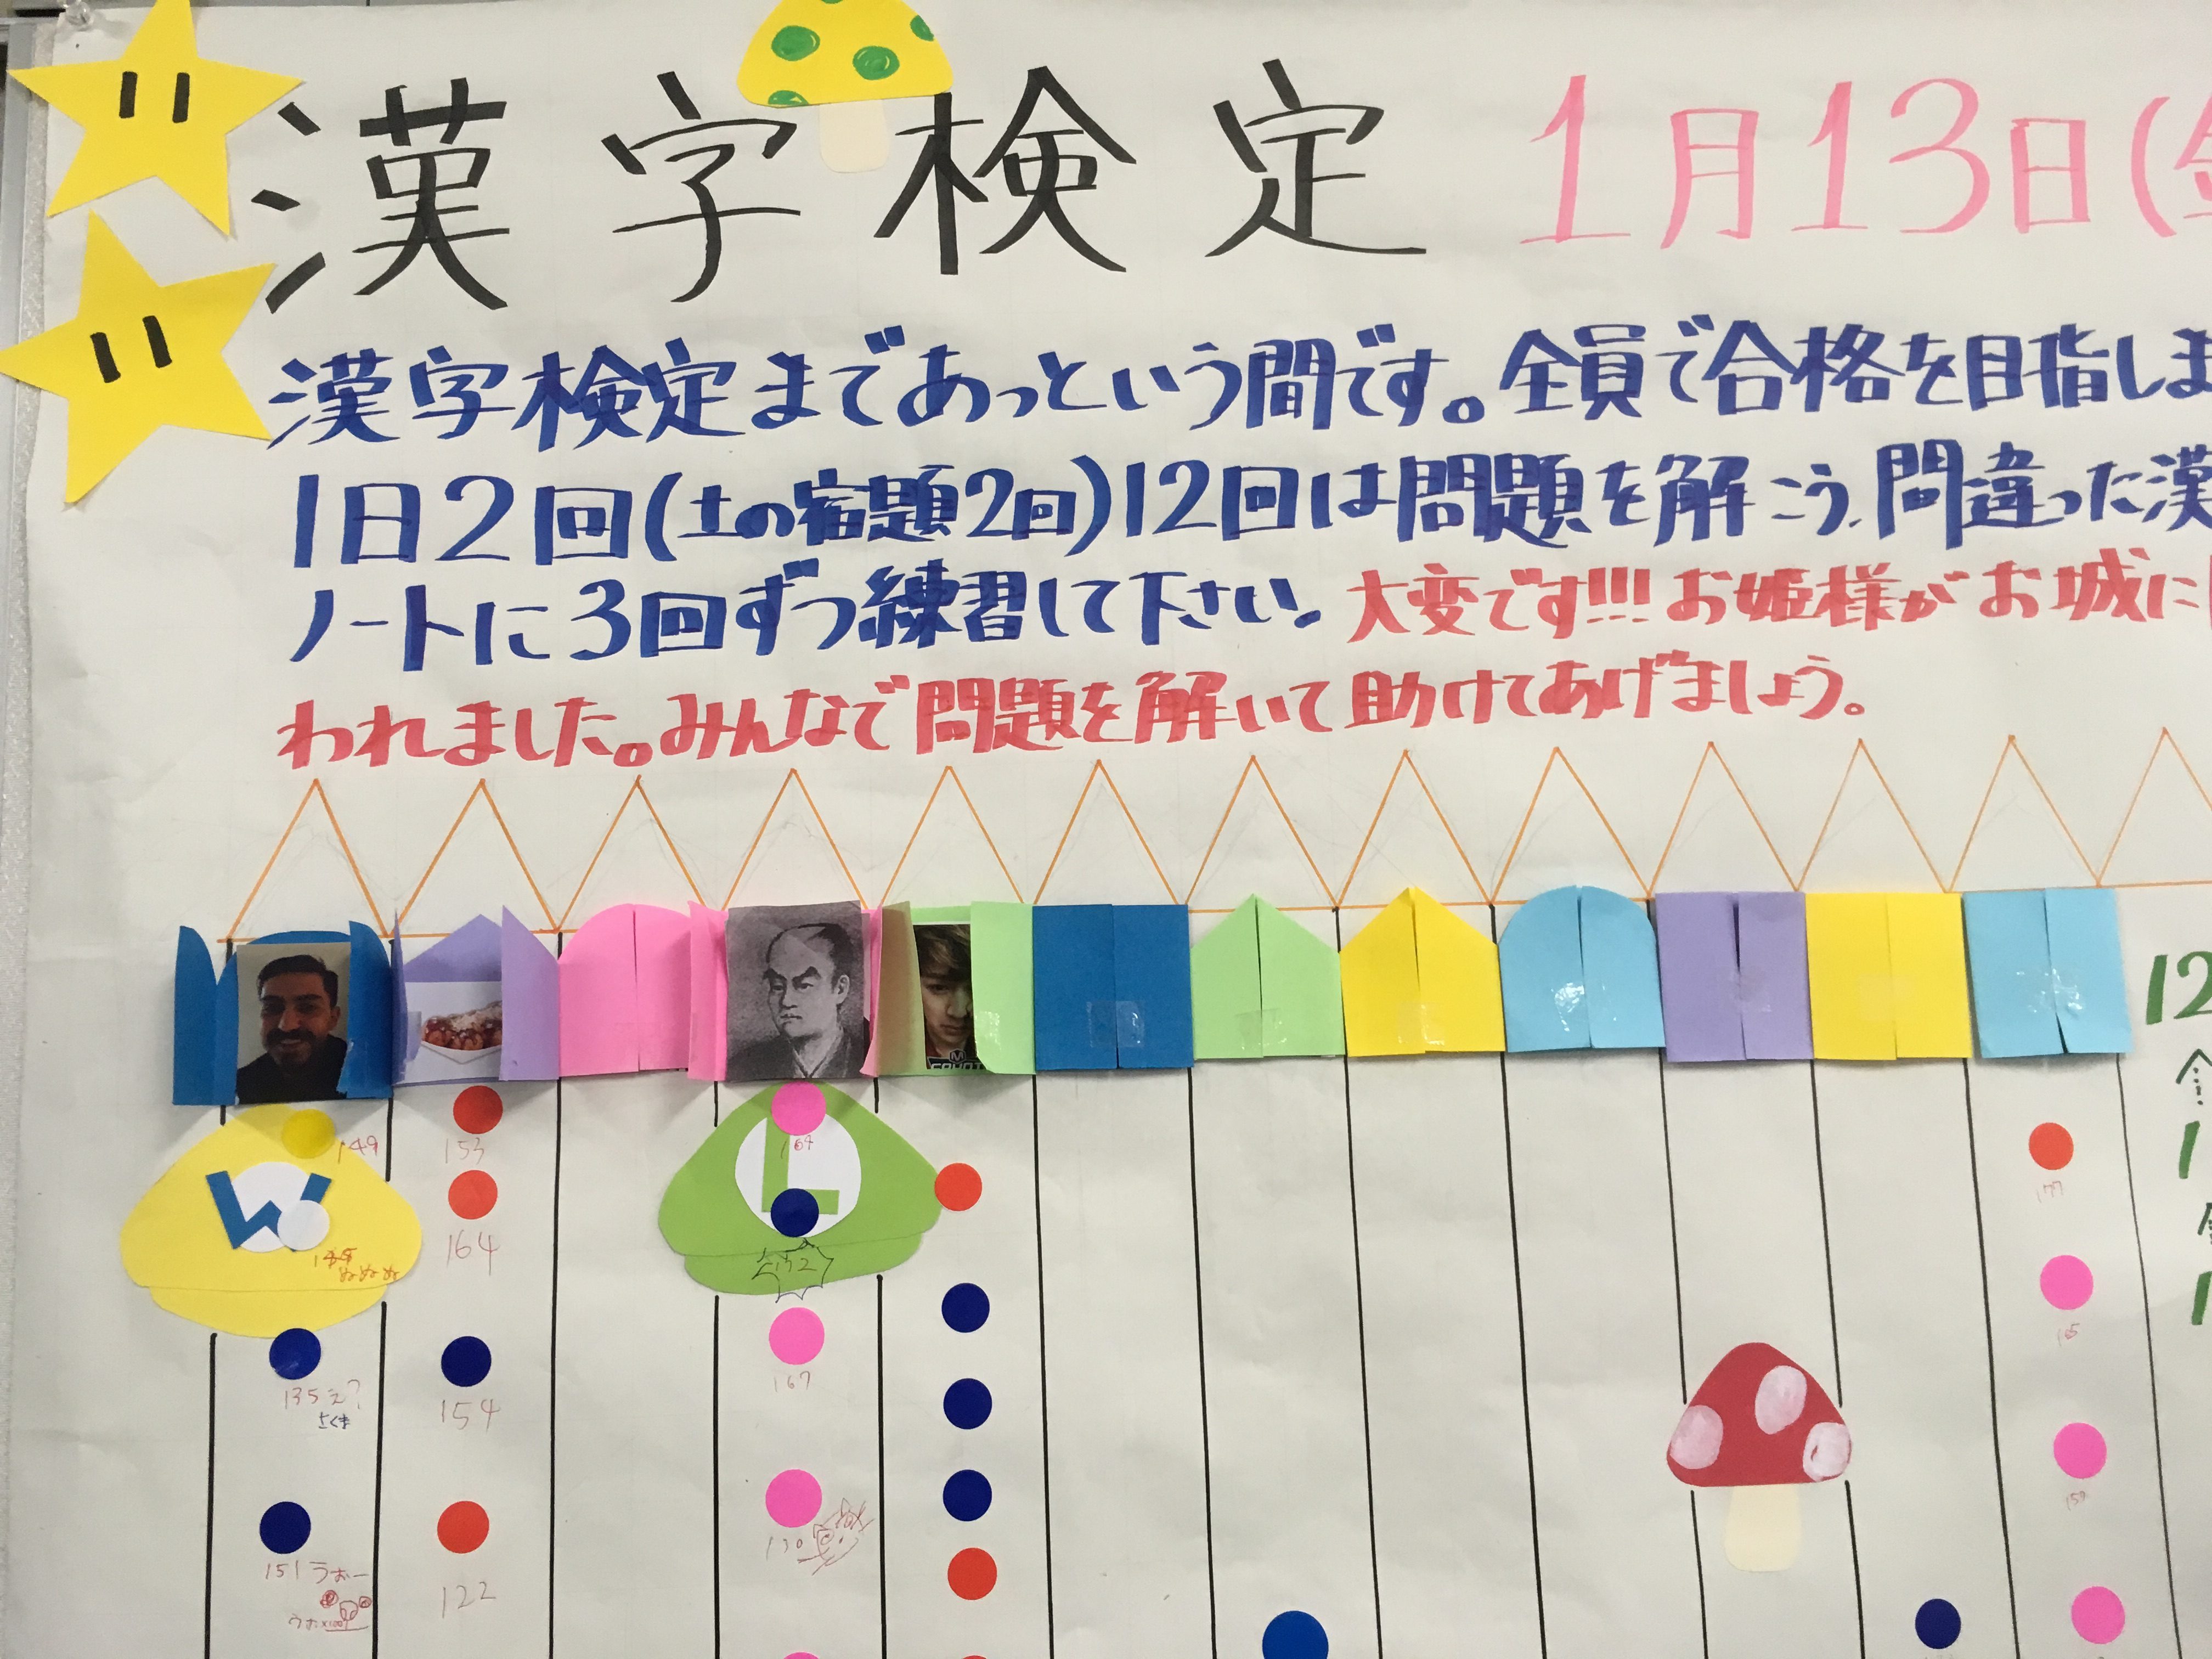 漢字検定 1月13日(金
漢字検定まであっという間です。全員で合格を目指しま
1日2回(土の宿題2回)12回は問題を解こう。間違った漢
ノートに3回ずつ練習して下さい。大変です!!!お姫様がお城に
われました。みんなで問題を解いて助けてあげましょう。
M
12
W
149
153
L
164
164
132
177
165
135 え?
さくま
154
167
159
151 うおー
122
130